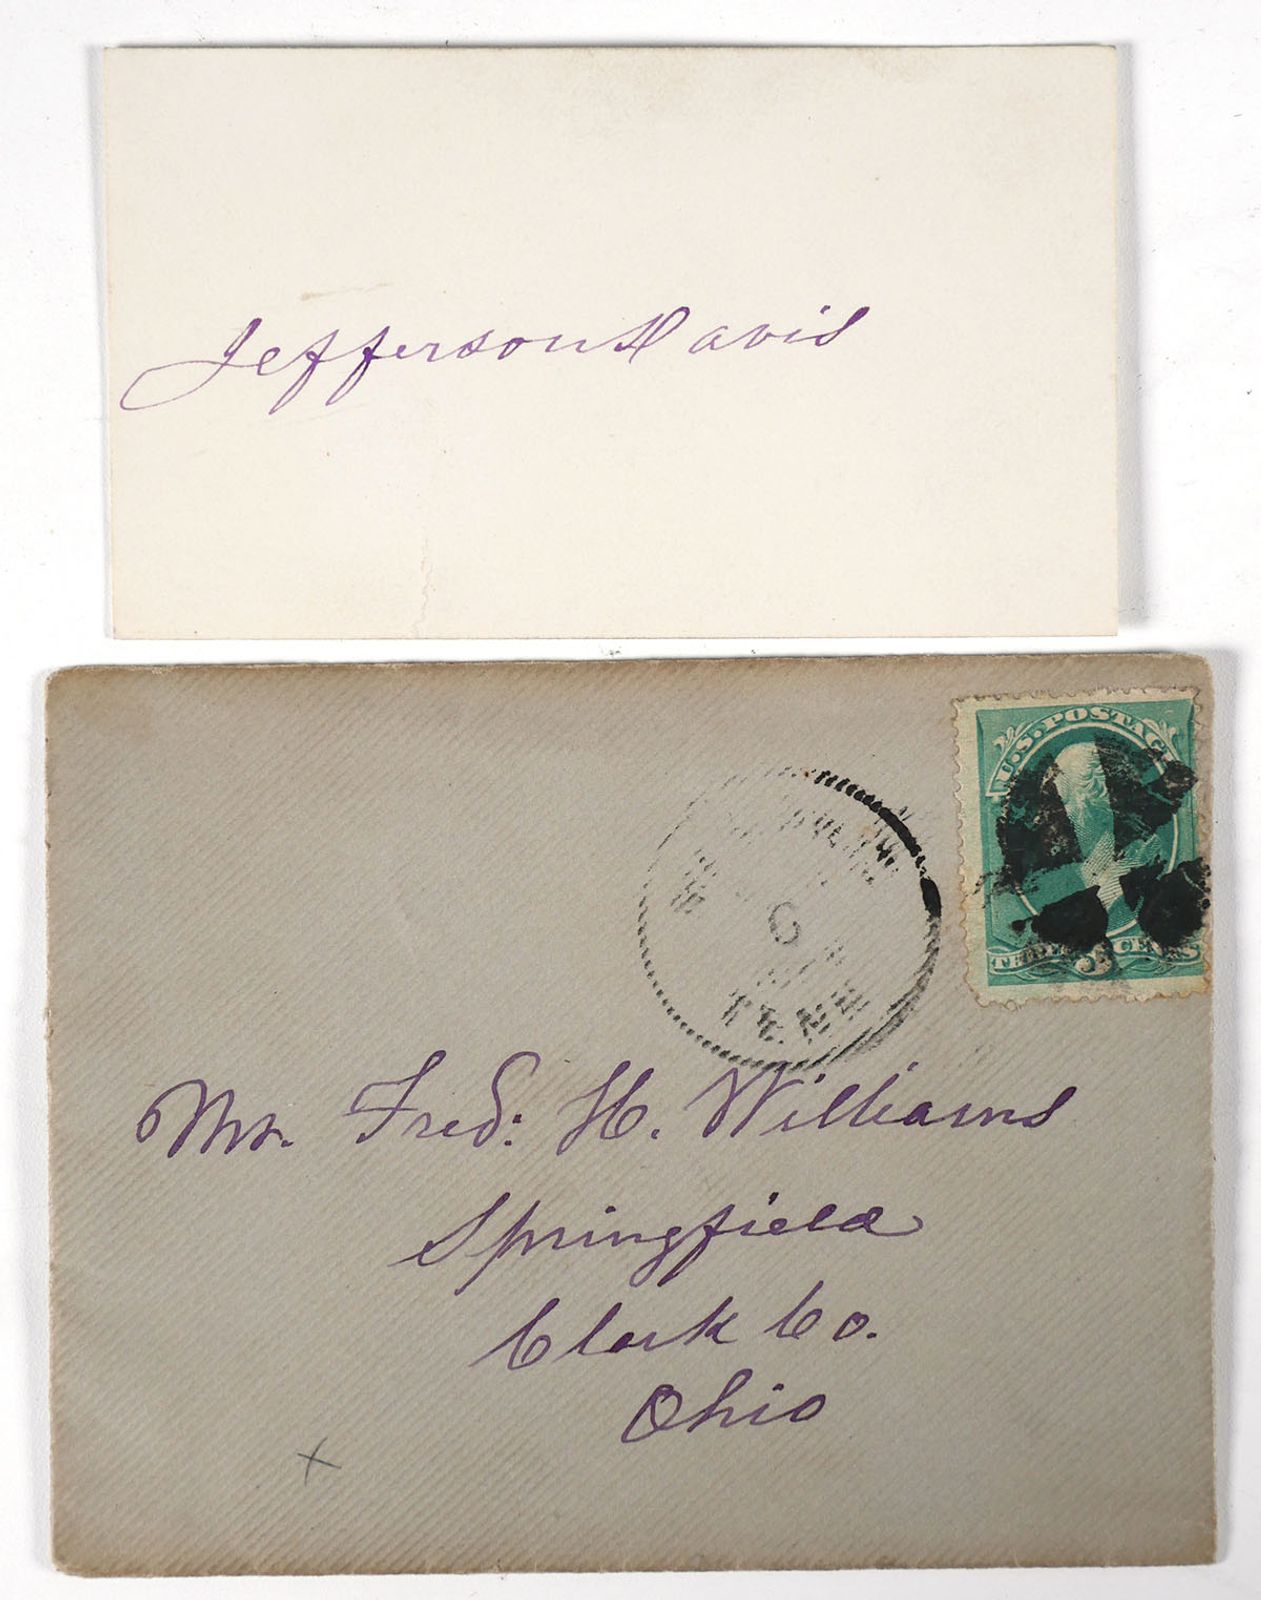 Jefferson Davis
U.S. POSTAGE
THREE 3 CENTS
TENN
Mr. Fred: H. Williams
Springfield
Clark Co.
Ohio